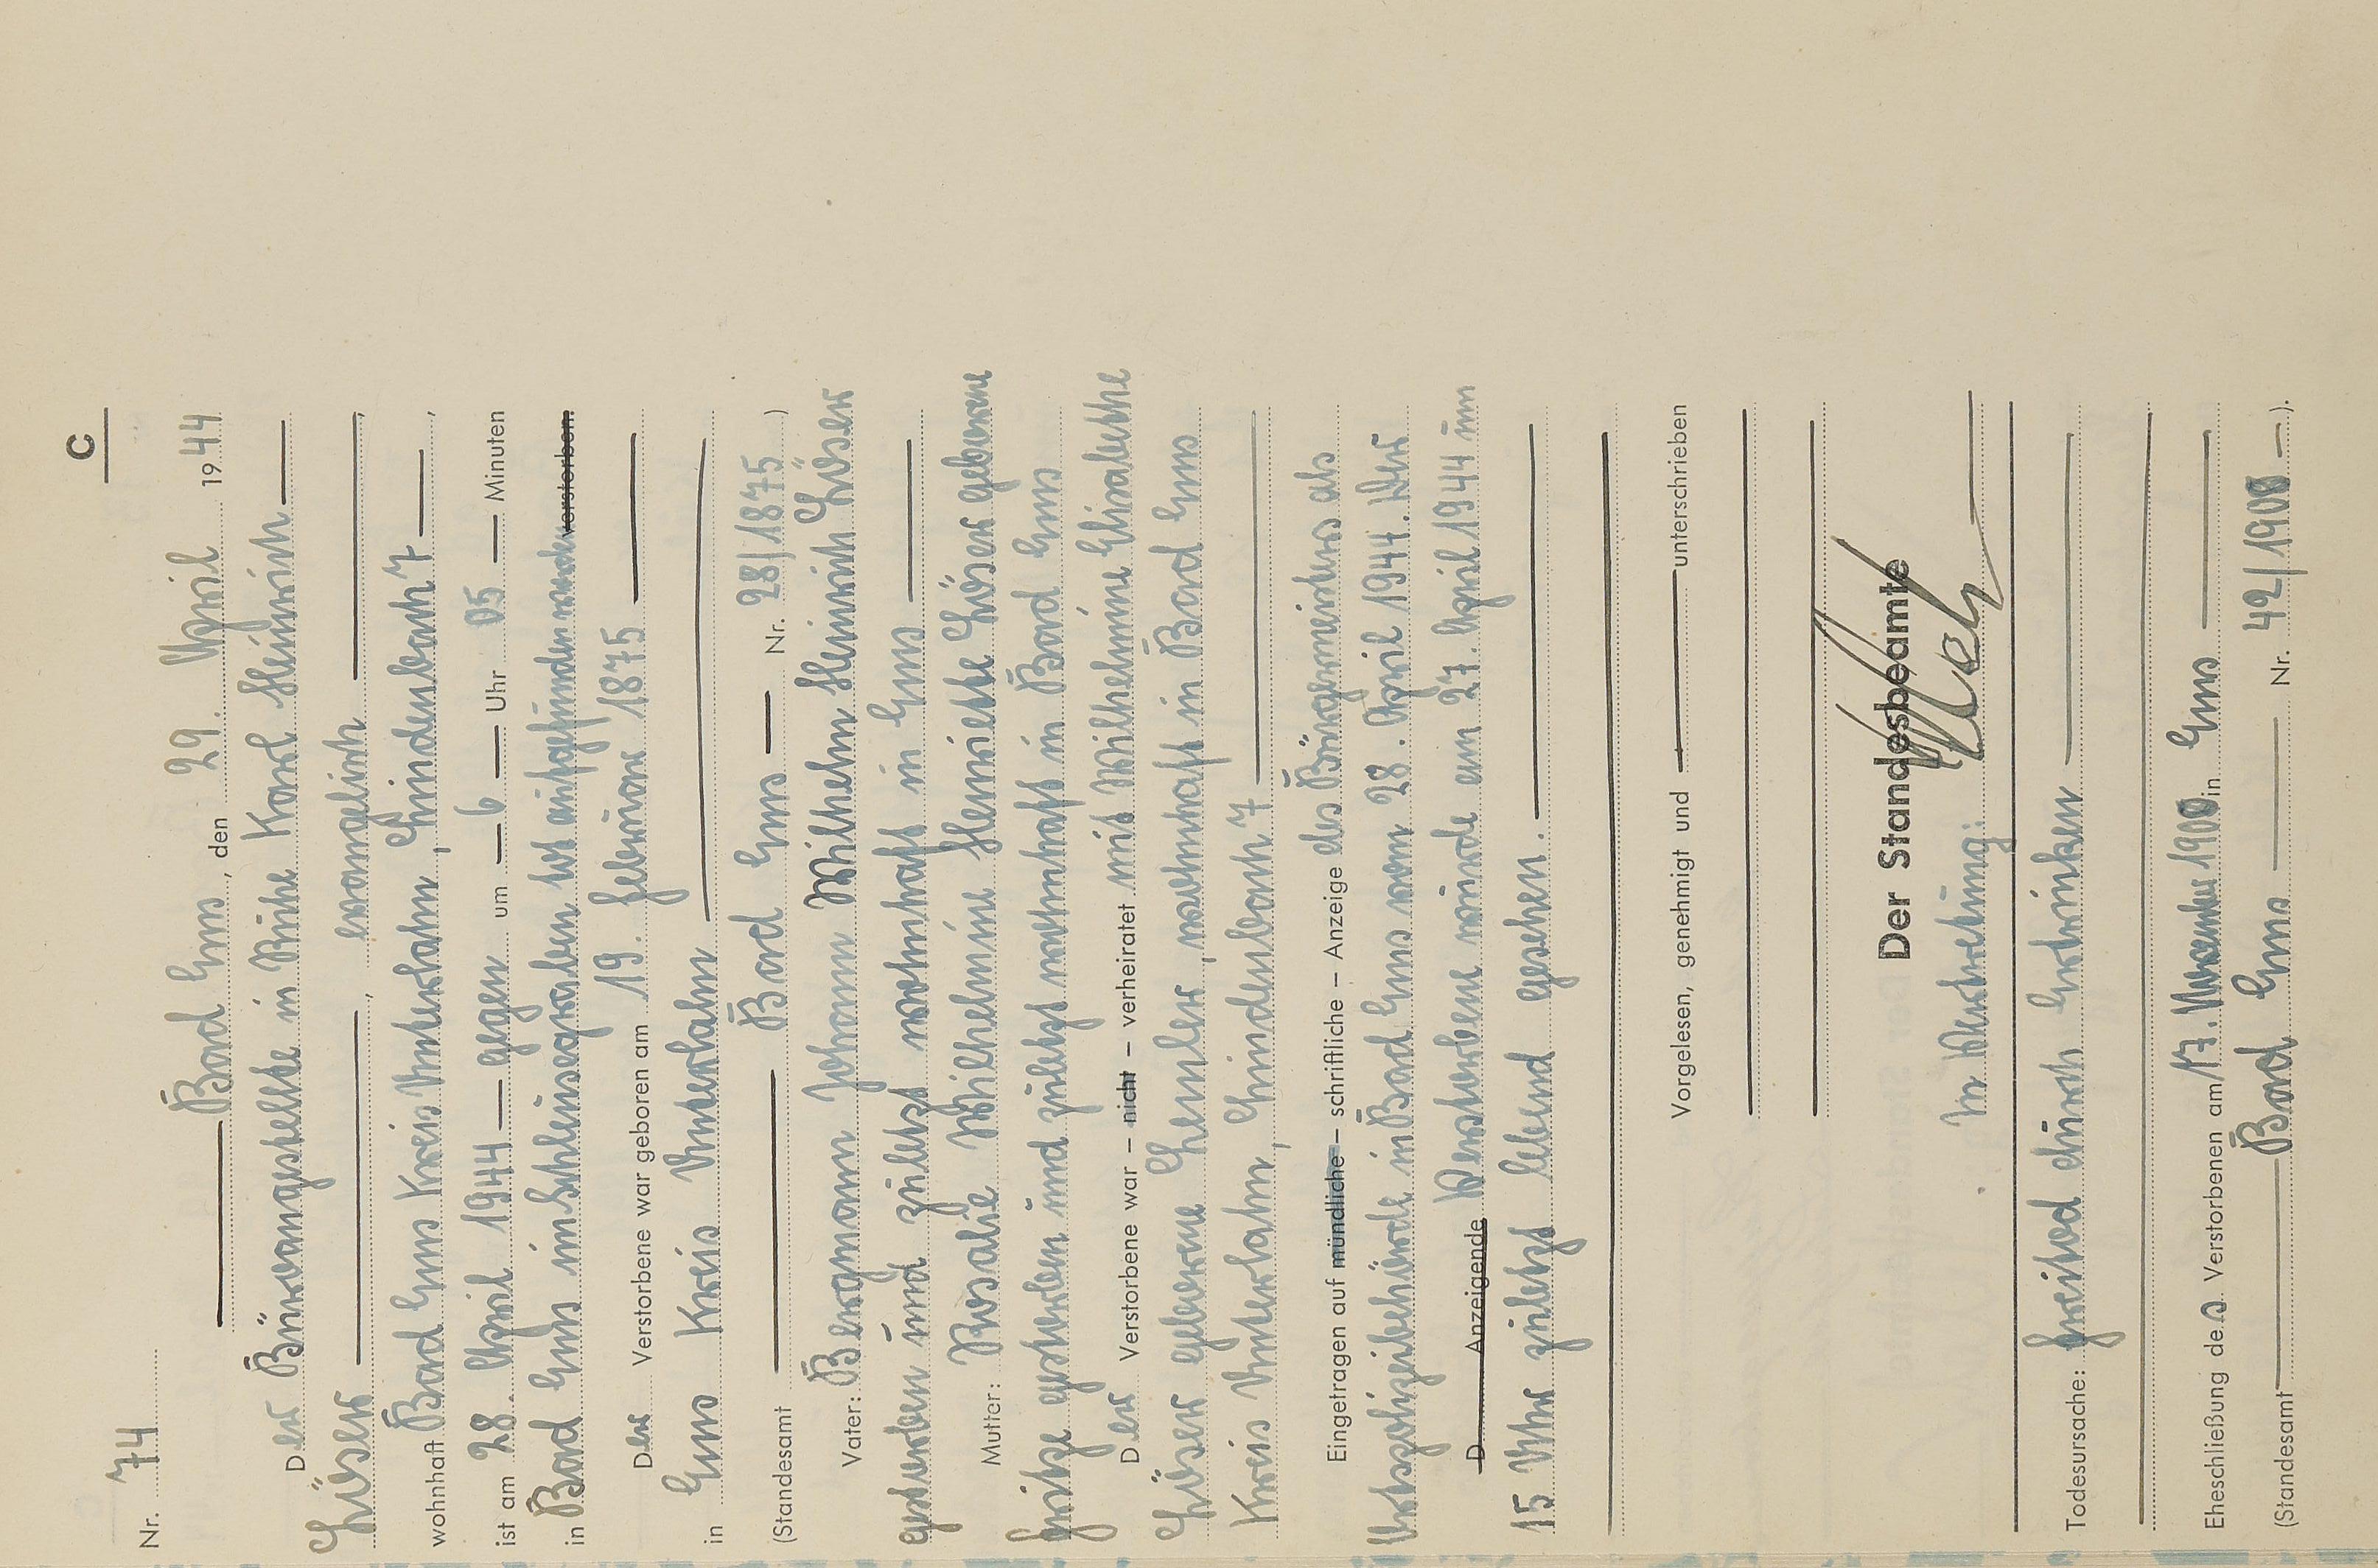 C
Nr. 74
Bad Ems, den 29. April 1944
Der Büroangestellte in Ruhe Karl Heinrich
Löser, evangelisch,
wohnhaft Bad Ems Kreis Unterlahn, Lindenbach 7,
ist am 28. April 1944 gegen um 6 Uhr 05 Minuten
in Bad Ems im Schleusegraben tot aufgefunden worden verstorben.
Der Verstorbene war geboren am 19. Februar 1875
in Ems Kreis Unterlahn
(Standesamt Bad Ems Nr. 28/1875)
Vater: Bergmann Johann Wilhelm Heinrich Löser
gestorben und zuletzt wohnhaft in Ems
Mutter: Rosalie Wilhelmine Henriette Löser geborene
Fritze gestorben und zuletzt wohnhaft in Bad Ems
Der Verstorbene war – nicht – verheiratet mit Wilhelmine Elisabethe
Löser geborene Lemler, wohnhaft in Bad Ems
Kreis Unterlahn, Lindenbach 7
Eingetragen auf mündliche – schriftliche – Anzeige des Bürgermeisters als
Ortspolizeibehörde in Bad Ems vom 28. April 1944. Der
D Anzeigende Verstorbene wurde am 27. April 1944 um
15 Uhr zuletzt lebend gesehen.
Vorgelesen, genehmigt und unterschrieben
Der Standesbeamte
In Vertretung:
Todesursache: Freitod durch Ertrinken
Eheschließung des Verstorbenen am 17. November 1900 in Ems
(Standesamt Bad Ems Nr. 42/1900).